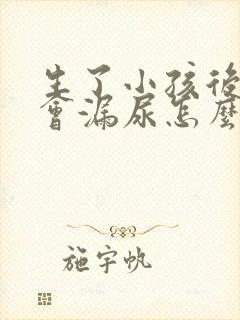 生了小孩後
會漏尿怎麼
施宇帆